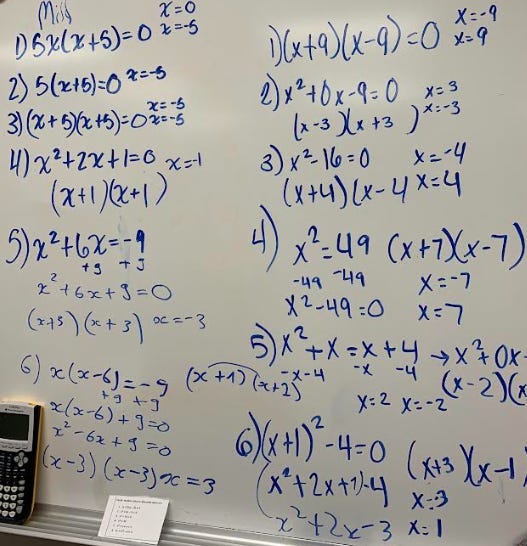 Miss
1) 5x(x+5)=0 x=0 x=-5
2) 5(x+5)=0 x=-5
3) (x+5)(x+5)=0 x=-5 x=-5
4) x²+2x+1=0 x=-1
(x+1)(x+1)
5) x²+6x=-9
+9 +9
x²+6x+9=0
(x+3)(x+3) x=-3
6) x(x-6)=-9
+9 +9
x(x-6)+9=0
x²-6x+9=0
(x-3)(x-3) x=3
(x+1)(x+2)
1) (x+9)(x-9)=0 x=-9 x=9
2) x²+0x-9=0 x=3
(x-3)(x+3) x=-3
3) x²-16=0 x=-4
(x+4)(x-4 x=4
4) x²=49 (x+7)(x-7)
-49 -49 x=-7
x²-49=0 x=7
5) x²+x=x+4 → x²+0x-
-x-4 -x -4 (x-2)(x
x=2 x=-2
6) (x+1)²-4=0 (x+3)(x-1
(x²+2x+1)-4 x=-3
x²+2x-3 x=1